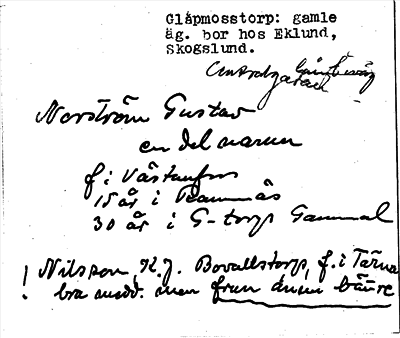 Glåpmosstorp: gamle
äg. bor hos Eklund,
Skogslund.
Centralgatan
Norström Gustav
en del namn
f. i Västanfors
15 år i Ramnäs
30 år i G-torp Gammal
! Nilsson, K.J. Bovallstorp, f. i Tärna
bra medd. men frun ännu bättre